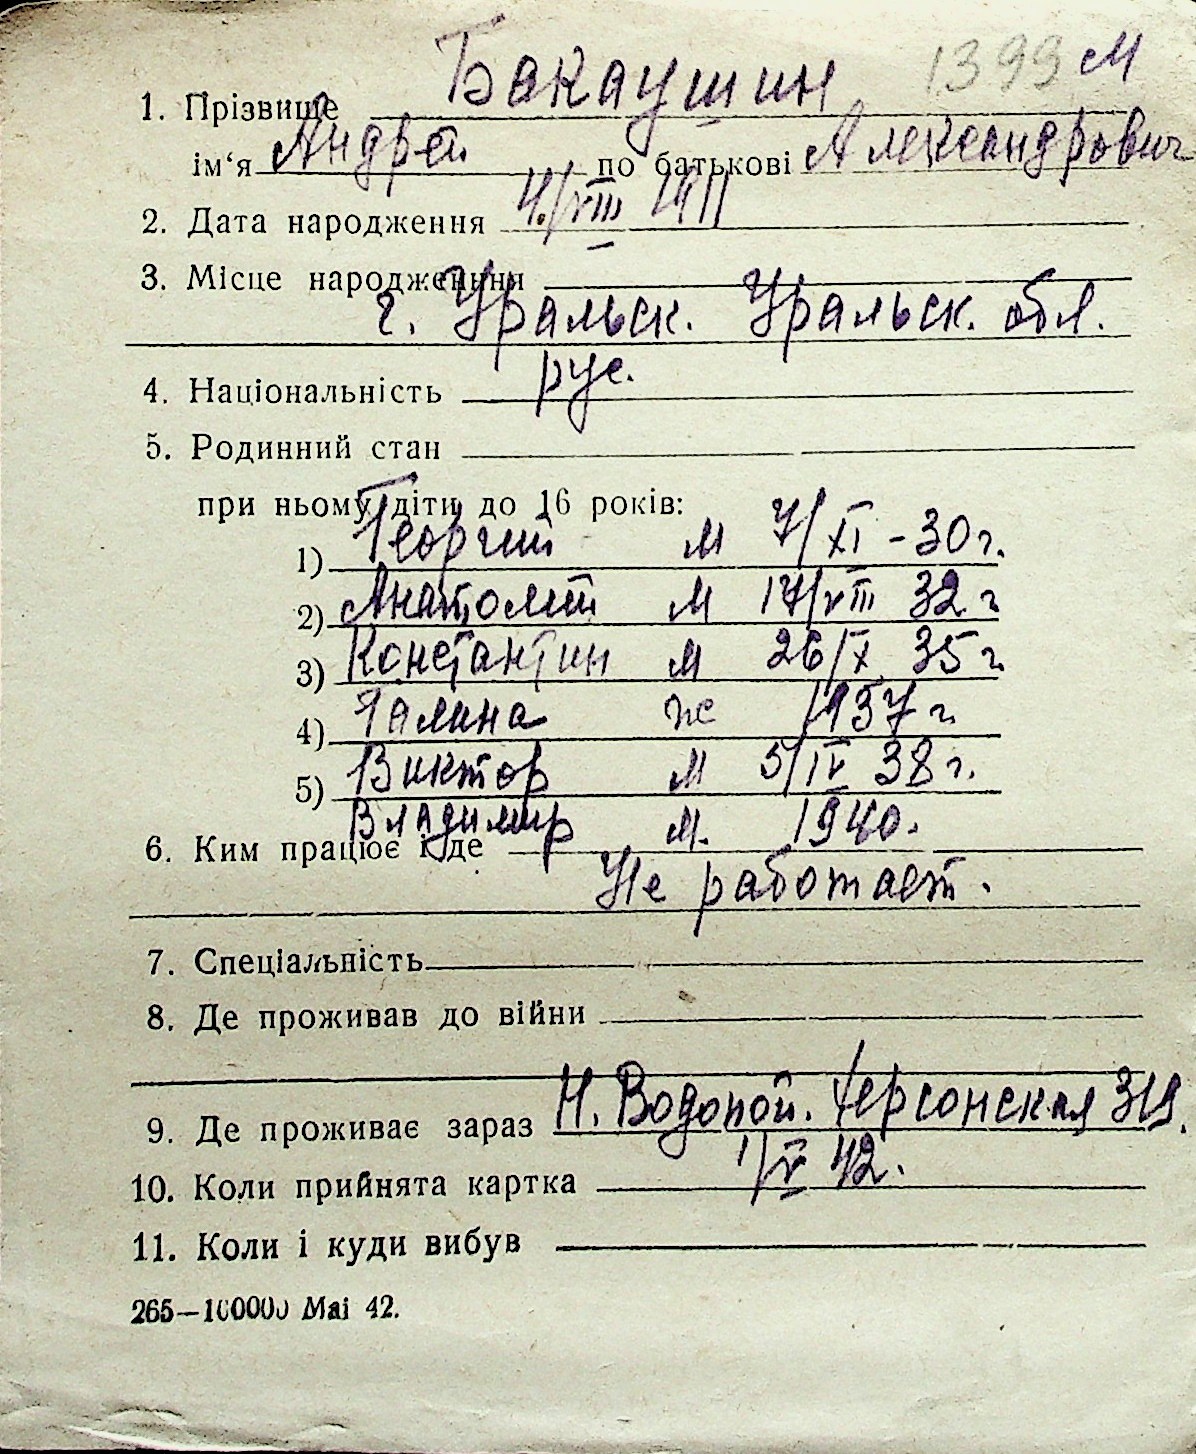 1399 м
1. Прізвище Бакаушин
ім‘я Андрей по батькові Александрович
2. Дата народження 4./VIII 1911
3. Місце народженння
г. Уральск. Уральск. обл.
4. Національність рус.
5. Родинний стан
при ньому діти до 16 років:
1) Георгий м 7/XI - 30 г.
2) Анатолий м 17/VIII 32 г
3) Константин м 26/X 35 г
4) Галина ж 1937 г.
5) Виктор м 5/IV 38 г.
Владимир м. 1940.
6. Ким працює і де
Не работает.
7. Спеціальність
8. Де проживав до війни
9. Де проживає зараз Н. Водопой. Херсонская 319.
10. Коли прийнята картка 1/V 42.
11. Коли і куди вибув
265—100000 Mai 42.